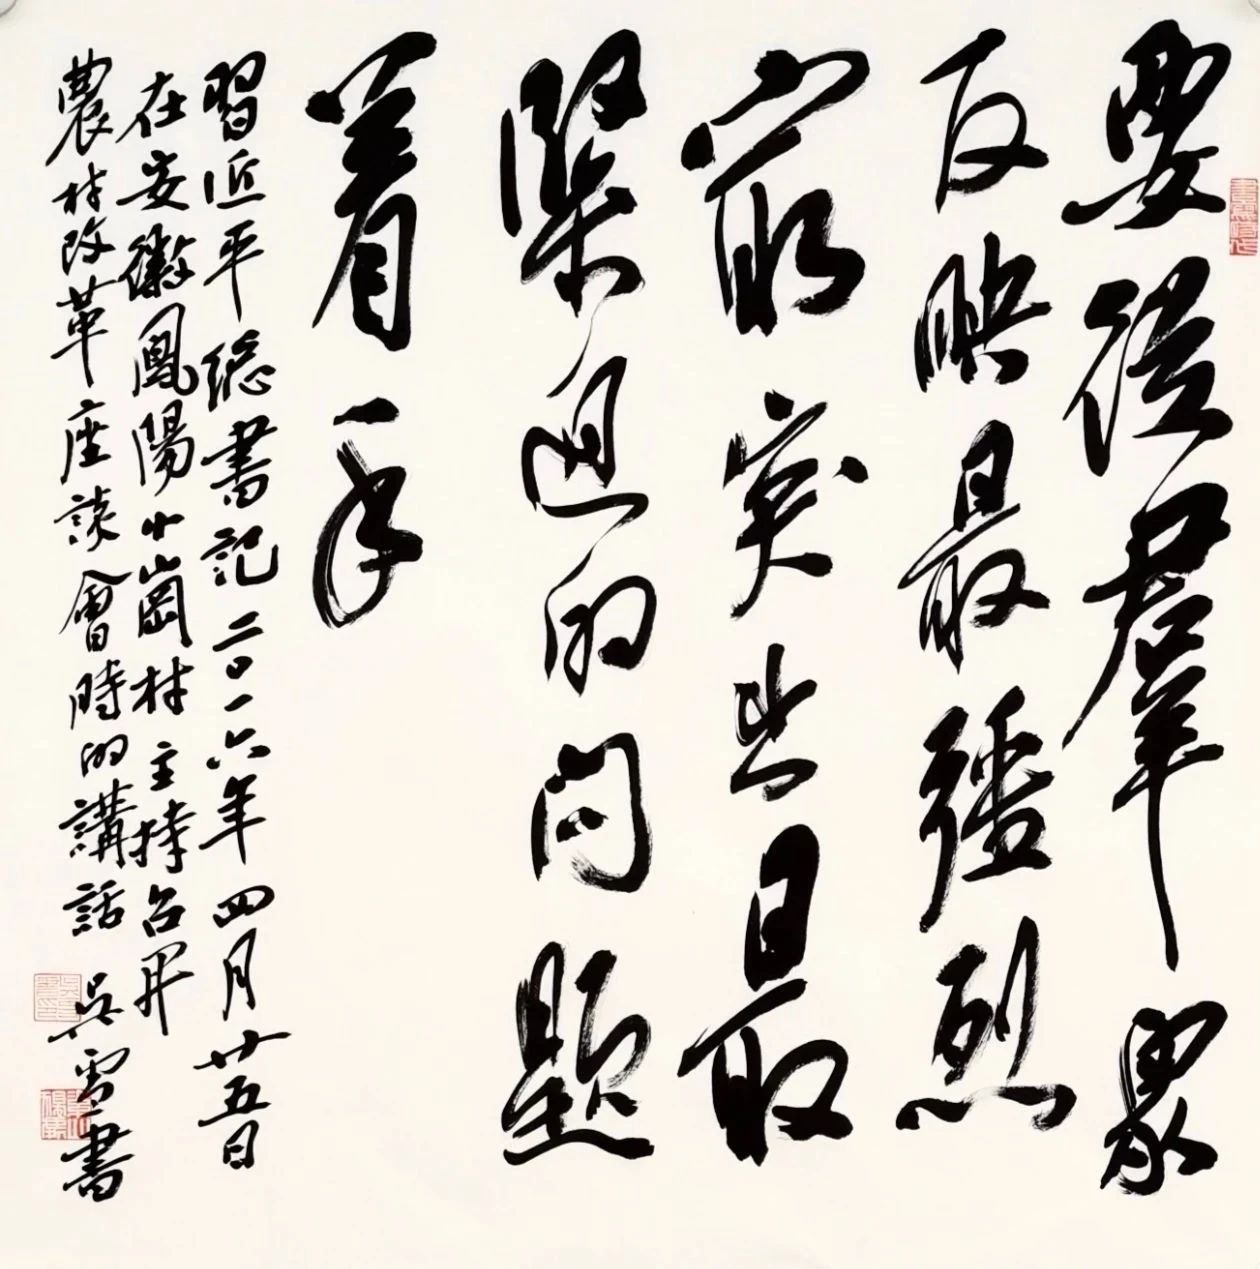 要從羣衆
反映最彊烈
最突出最
緊迫的問題
着手
習近平總書記二〇一六年四月廿五日
在安徽鳳陽小崗村主持召開
農村改革座談會時的講話 吳雪書